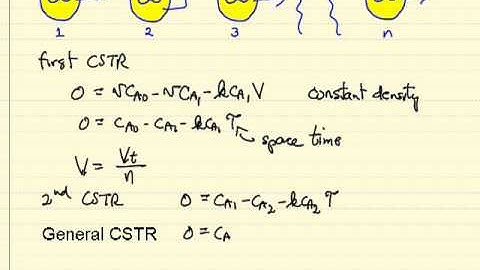 1 2 3 n
first CSTR
0 = υC_A0 - υC_A1 - kC_A1 V constant density
0 = C_A0 - C_A1 - kC_A1 τ space time
V = Vt/n
2nd CSTR 0 = C_A1 - C_A2 - kC_A2 τ
General CSTR 0 = C_A